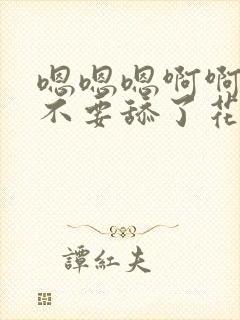 嗯嗯嗯啊啊
不要舔了花
譚紅夫